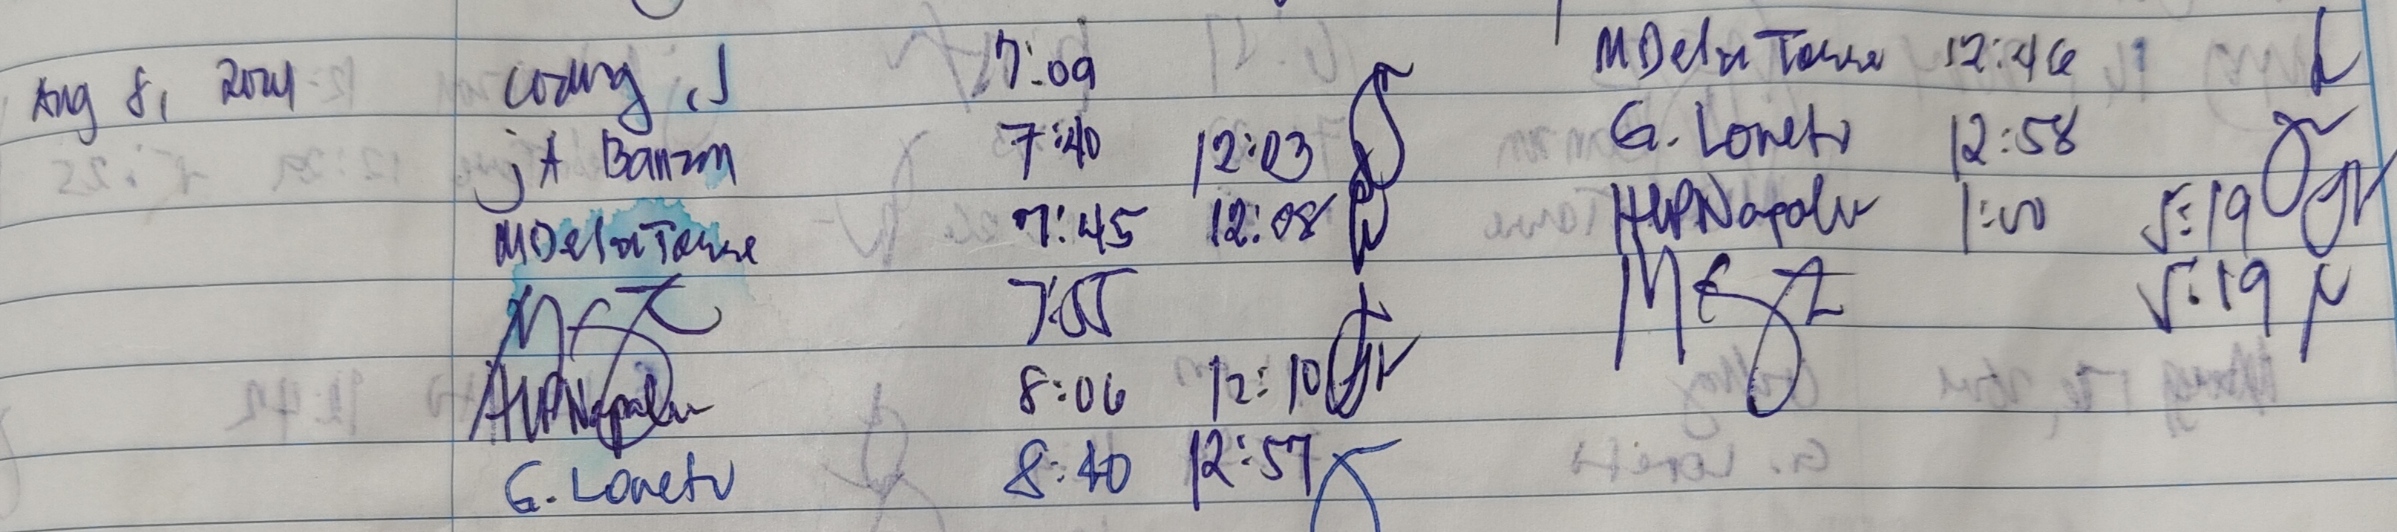 Aug 8, 2024 Coding, J 7:09
JA Banzon 7:40 12:03
MDelaTorre 7:45 12:08
7:55
AUPNapalu 8:06 12:10
G. Loreto 8:40 12:57
MDelaTorre 12:46
G. Loreto 12:58
AUPNapalu 1:00 5:19
5:19